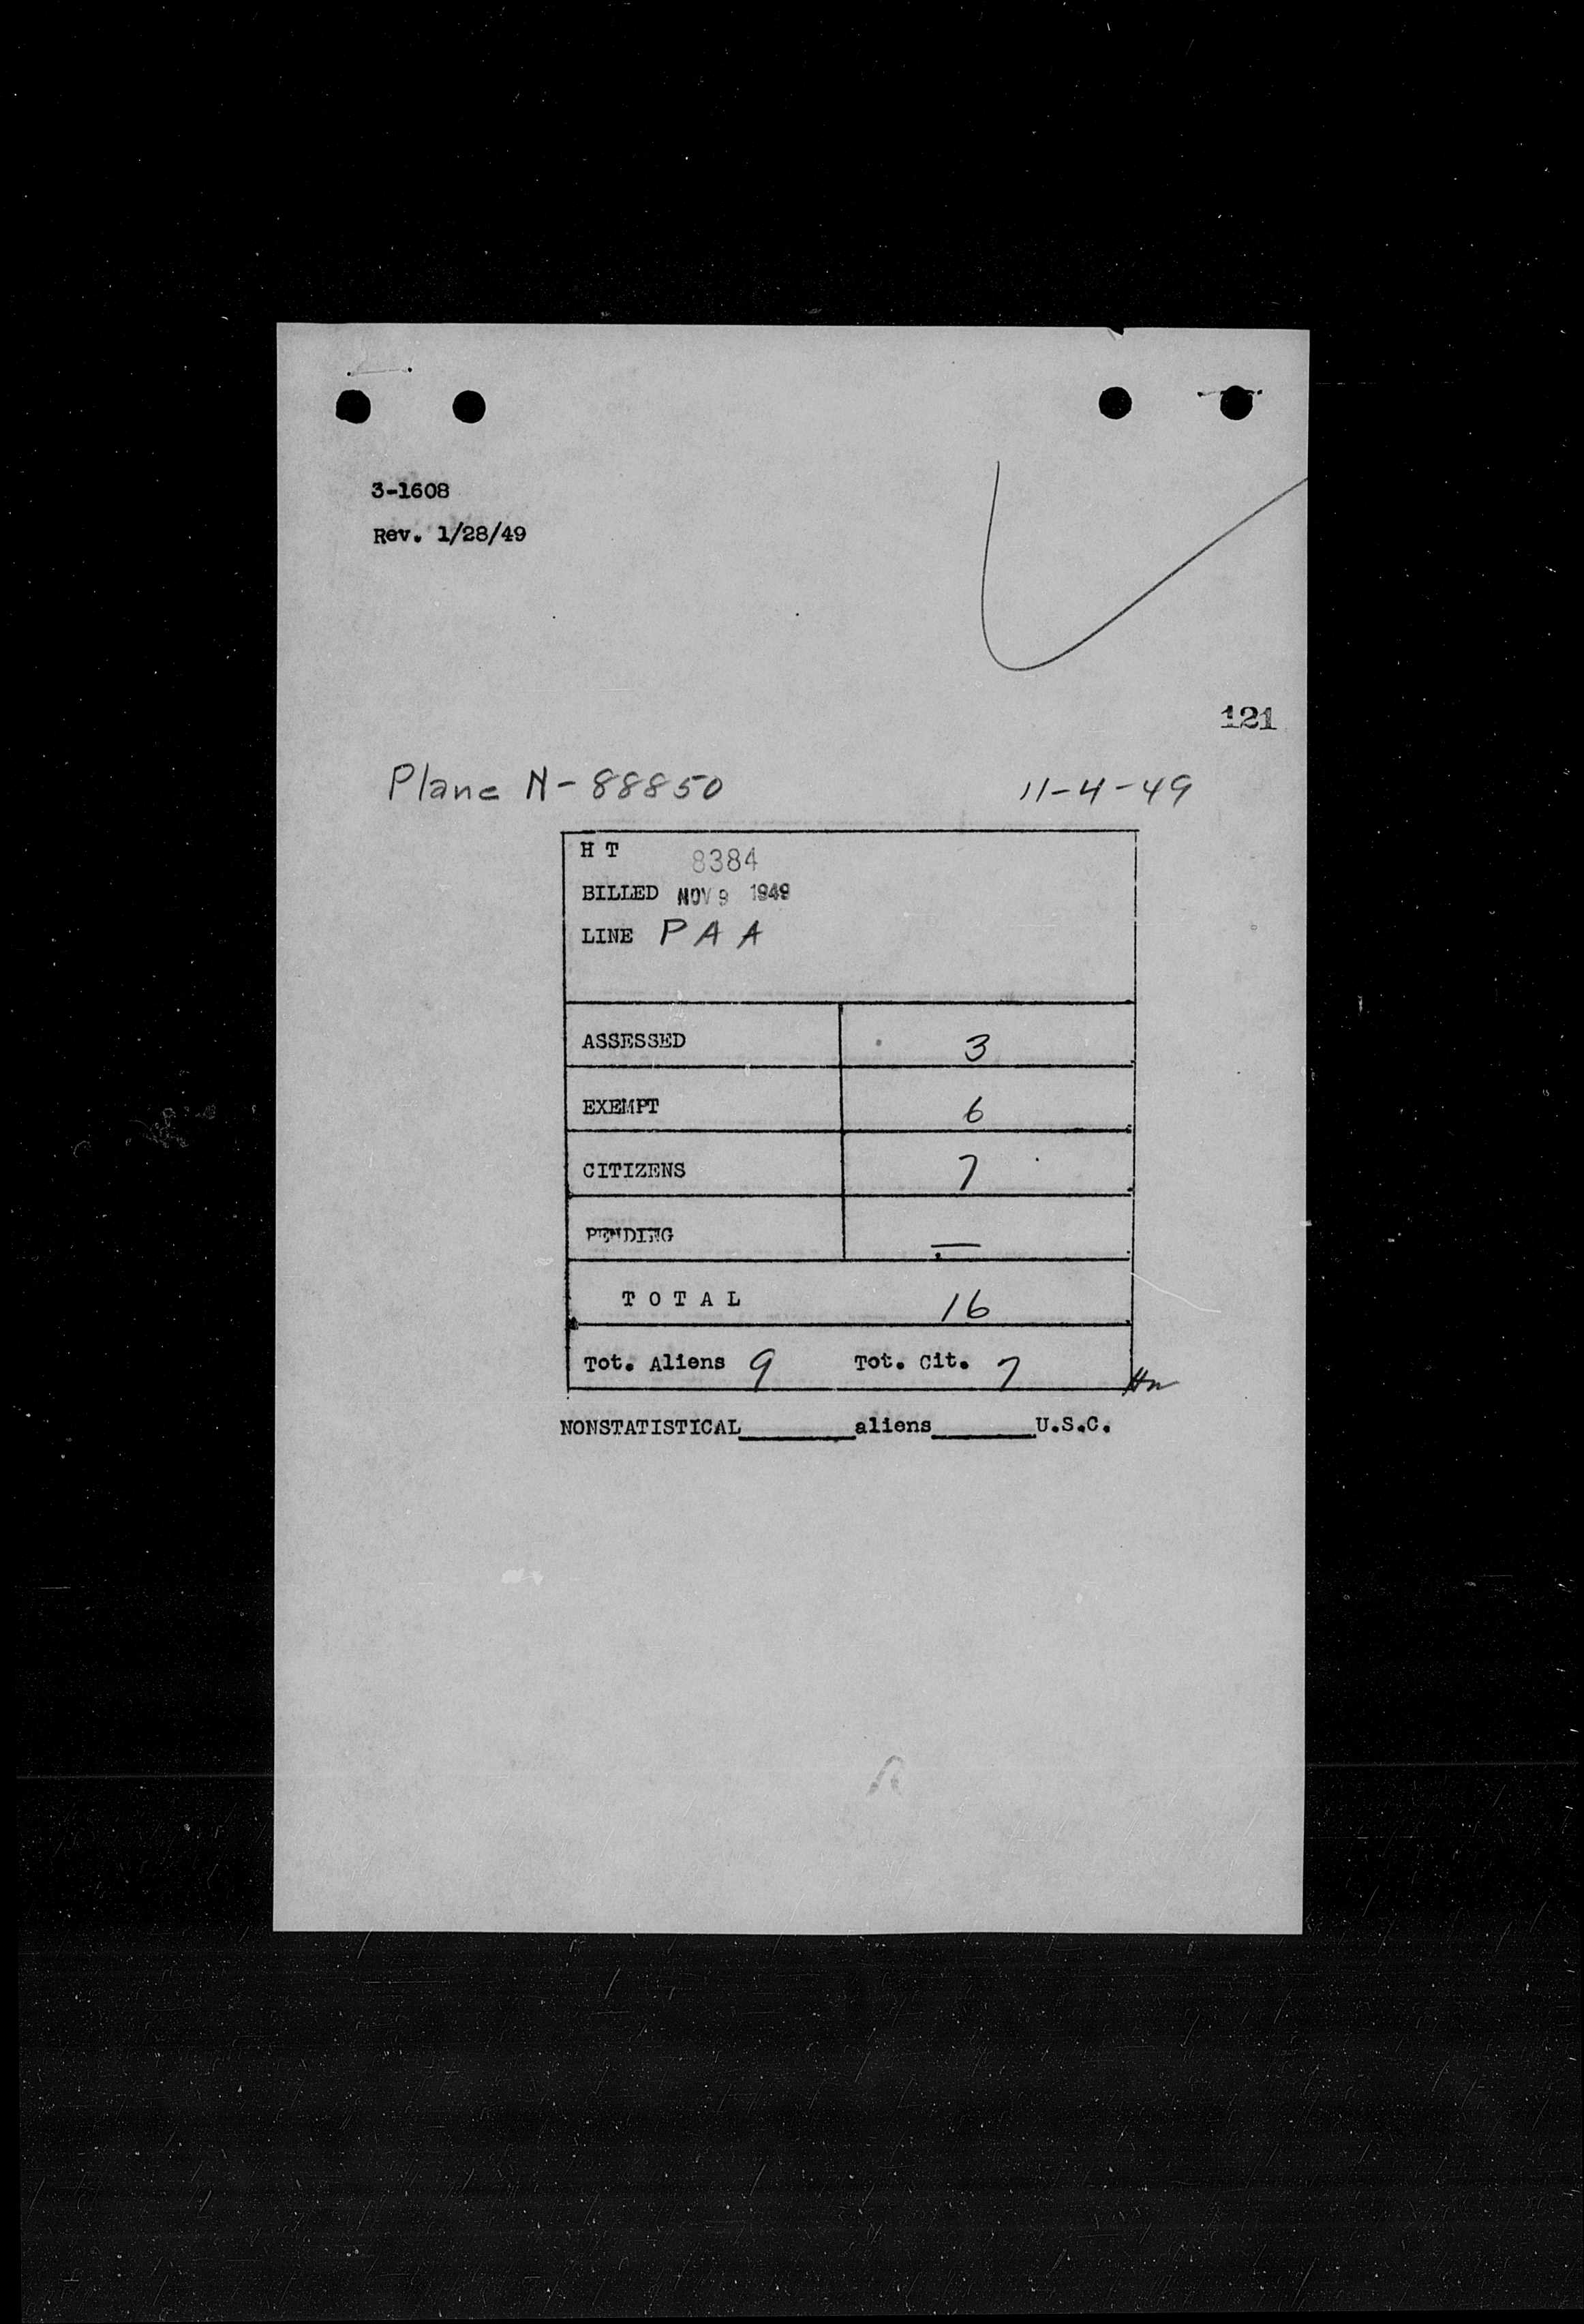 3-1608
Rev. 1/28/49
121
Plane N-88850 11-4-49
H T 8384
BILLED NOV 9 1949
LINE P A A
ASSESSED 3
EXEMPT 6
CITIZENS 7
PENDING —
T O T A L 16
Tot. Aliens 9 Tot. Cit. 7
NONSTATISTICAL________aliens_______U.S.C.